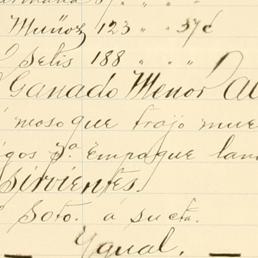 Muñoz 123 " " 37¢
Solis 188 " " "
Ganado Menor
moso que trajo mue
gos pª Empaque lan
Sirvientes.
Soto. a sucta.
Ygual.